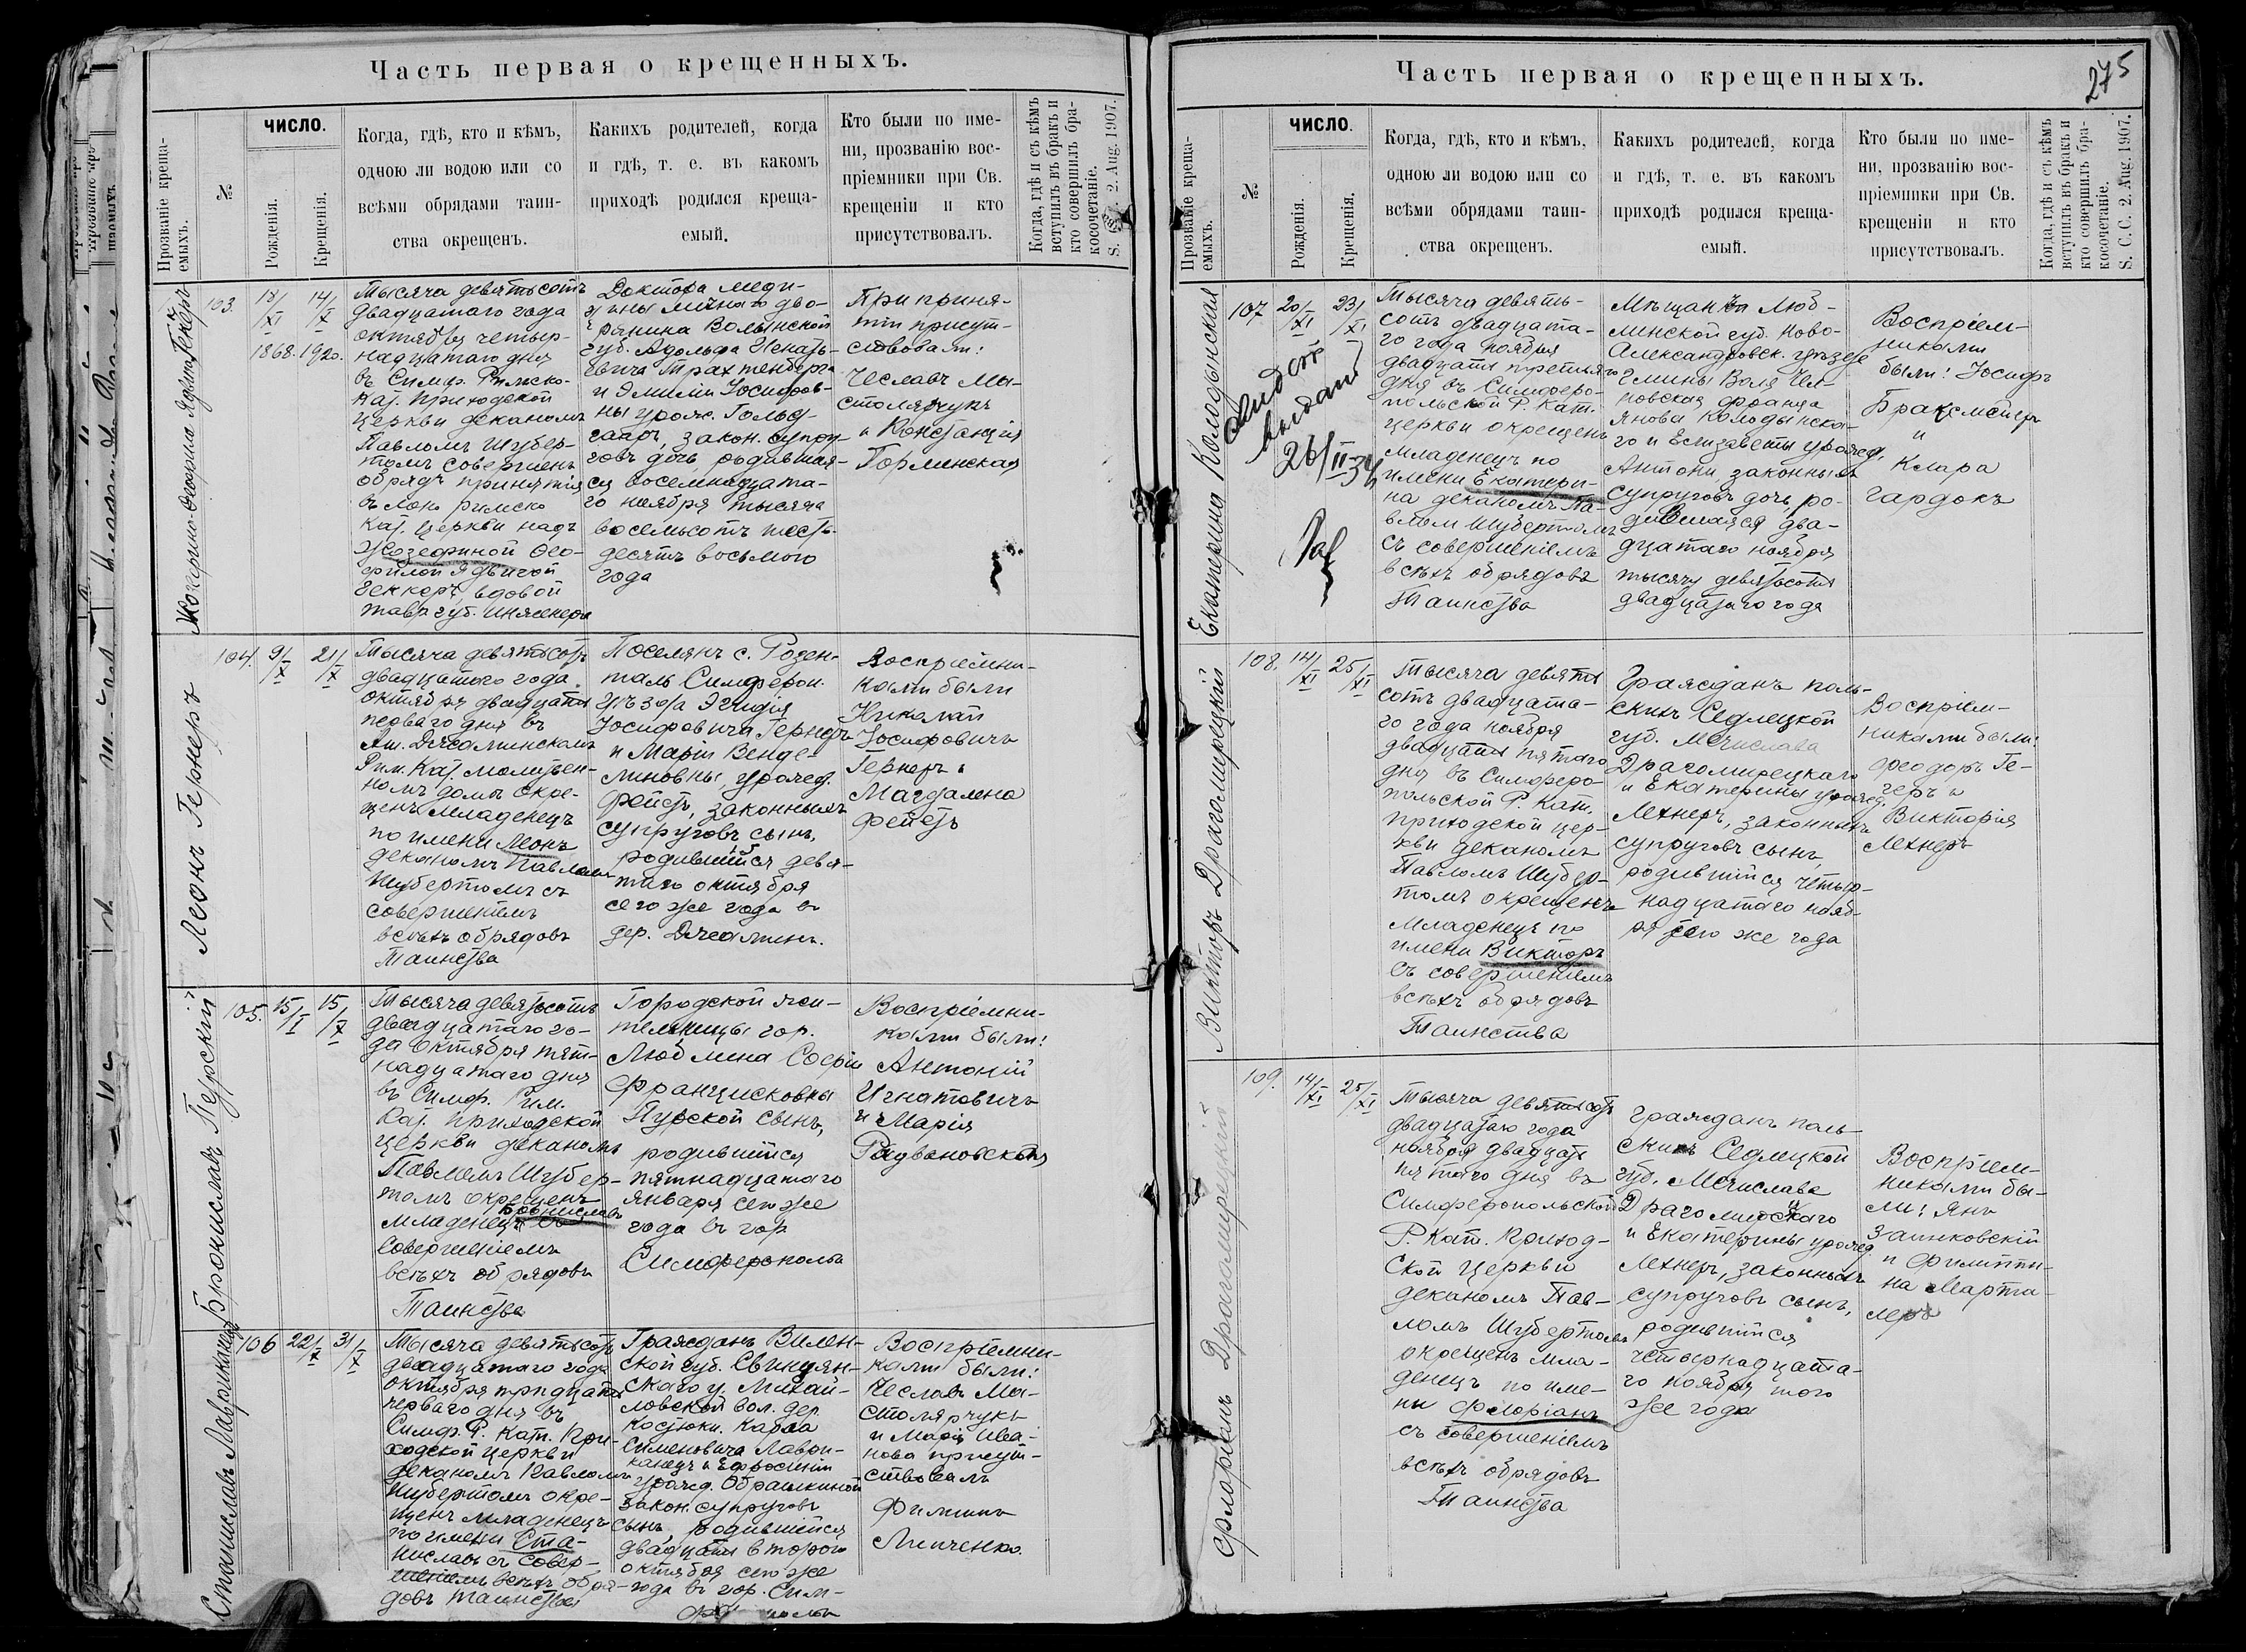 Часть первая о крещенныхъ.
Прозваніе креща-
емыхъ.
№
ЧИСЛО.
Рожденія.
Крещенія.
Когда, гдѣ, кто и кѣмъ,
одною ли водою или со
всѣми обрядами таин-
ства окрещенъ.
Какихъ родителей, когда
и гдѣ, т. е. въ какомъ
приходѣ родился креща-
емый.
Кто были по име-
ни, прозванію вос-
пріемники при Св.
крещеніи и кто
присутствовалъ.
Когда, гдѣ и съ кѣмъ
вступилъ въ бракъ и
кто совершилъ бра-
косочетаніе.
S. C. C. 2. Aug. 1907.
103.
18/XI
1868.
14/X
1920.
Тысяча девятьсотъ
двадцатаго года
октября четыр-
надцатаго дня
въ Симф. Римско-
Кат. Приходской
церкви деканомъ
Павломъ Шубер-
томъ совершенъ
обрядъ принятія
въ лоно римско
кат. церкви надъ
Жозефиной Ѳео-
филой Ядвигой
Геккеръ, вдовой
тавр. губ. инженера
Доктора меди-
цины личнаго дво-
рянина Волынской
губ. Адольфа Игнать-
евича Трахтенберга
и Эмиліи Іосифов-
ны урож. Гольд-
гааръ, закон. супру-
говъ дочь, родившая-
ся восемнадцата-
го ноября тысяча
восемьсотъ шесть-
десятъ восьмого
года
При приня-
тіи присут-
ствовали:
Чеславъ Ма-
столярчукъ
и Констанція
Горлинская
Леонъ Гернеръ
104.
9/X
21/X
Тысяча девятьсотъ
двадцатаго года.
октября двадцать
перваго дня въ
Ат. Джаминскомъ
Рим. Кат. молитвен-
номъ домѣ окре-
щенъ младенецъ
по имени Леонъ
деканомъ Павломъ
Шубертомъ съ
совершеніемъ
всѣхъ обрядовъ
Таинства
Поселянъ с. Розен-
таль Симфероп.
уѣзда Эгидія
Іосифовича Гернеръ
и Маріи Венде-
линовны, урожд.
Фейстъ, законныхъ
супруговъ сынъ,
родившійся девя-
таго октября
сего же года въ
дер. Джаминъ.
Воспріемни-
ками были
Николай
Іосифовичъ
Гернеръ и
Магдалена
Фейстъ
Брониславъ Пурскій
105.
15/I
15/X
Тысяча девятьсотъ
двадцатаго го-
да октября пят-
надцатаго дня
въ Симф. Рим.
Кат. приходской
церкви деканомъ
Павломъ Шубер-
томъ окрещенъ
Брониславъ
младенецъ съ
совершеніемъ
всѣхъ обрядовъ
Таинства
Городской жи-
тельницы гор.
Люблина Софіи
Францисковны
Пурской сынъ,
родившійся
пятнадцатаго
января сего же
года въ гор.
Симферополѣ
Воспріемни-
ками были:
Антоній
Игнатовичъ
и Марія
Радвановская
Станиславъ Лавриканецъ
106
22/X
31/X
Тысяча девятьсотъ
двадцатаго года
октября тридцать
перваго дня въ
Симф. Р. Кат. При-
ходской церкви
деканомъ Павломъ
Шубертомъ окре-
щенъ младенецъ
по имени Ста-
ниславъ съ совер-
шеніемъ всѣхъ обря-
довъ таинства
Гражданъ Вилен-
ской губ. Свинцян-
скаго у. Михай-
ловской вол. дер.
Костюки. Карла
Сименовича Лаври-
канецъ и Ефросиніи
урожд. Обрашкиной
закон. супруговъ
сынъ, родившійся
двадцать второго
октября сего же
года въ гор. Сим-
Воспріемни-
ками были:
Чеславъ Ма-
столярчукъ
и Марія Ива-
нова присут-
ствовалъ
Филиппъ
Липченко.
Часть первая о крещенныхъ.
275
Прозваніе креща-
емыхъ.
№
ЧИСЛО.
Рожденія.
Крещенія.
Когда, гдѣ, кто и кѣмъ,
одною ли водою или со
всѣми обрядами таин-
ства окрещенъ.
Какихъ родителей, когда
и гдѣ, т. е. въ какомъ
приходѣ родился креща-
емый.
Кто были по име-
ни, прозванію вос-
пріемники при Св.
крещеніи и кто
присутствовалъ.
Когда, гдѣ и съ кѣмъ
вступилъ въ бракъ и
кто совершилъ бра-
косочетаніе.
S. C. C. 2. Aug. 1907.
Екатерина Колодынская
107
20/XI
23/XI
выдано
26/II 34
Тысяча девять-
сотъ двадцата-
го года ноября
двадцать третьяго
дня въ Симферо-
польской Р. Кат.
церкви окрещенъ
младенецъ по
имени Екатери-
на деканомъ Па-
вломъ Шубертомъ
съ совершеніемъ
всѣхъ обрядовъ
Таинства
Мѣщанъ Люб-
линской губ. Ново-
Александровск. уѣзда
гмины Воля Чел-
повская
Янова Колодынска-
го и Елизаветы урожд.
Антони, законныхъ
супруговъ дочь, ро-
дившаяся два-
дцатаго ноября
тысячу девятьсотъ
двадцатаго года
Воспріем-
никами
были: Іосифъ
Браксмейеръ
и
Клара
Гардокъ
Викторъ Драгомирецкій
108.
14/XI
25/XI
Тысяча девять
сотъ двадцата-
го года ноября
двадцать пятаго
дня въ Симферо-
польской Р. Кат.
приходской цер-
кви деканомъ
Павломъ Шубер-
томъ окрещенъ
младенецъ по
имени Викторъ
съ совершеніемъ
всѣхъ обрядовъ
Таинства
Гражданъ поль-
скихъ Седлецкой
губ. Мечислава
Драгомирецкаго
и Екатерины урожд.
Лехнеръ, законныхъ
супруговъ сынъ,
родившійся четыр-
надцатаго нояб-
ря сего же года
Воспріем-
никами были:
Ѳеодоръ Ге-
геръ и
Викторія
Лехнеръ
Флоріанъ Драгомирецкій
109.
14/XI
25/XI
Тысяча девятьсотъ
двадцатаго года
ноября двадцать
пятаго дня въ
Симферопольской
Р. Кат. приход-
ской церкви
деканомъ Пав-
ломъ Шубертомъ
окрещенъ мла-
денецъ по име-
ни Флоріанъ
съ совершеніемъ
всѣхъ обрядовъ
Таинства
Гражданъ поль-
скихъ Седлецкой
губ. Мечислава
Драгомирецкаго
и Екатерины урожд.
Лехнеръ, законныхъ
супруговъ сынъ,
родившійся
четырнадцата-
го ноября того
же года
Воспріем-
никами бы-
ли: Янъ
Заинковскій
и Филиппи-
на Марта-
леръ